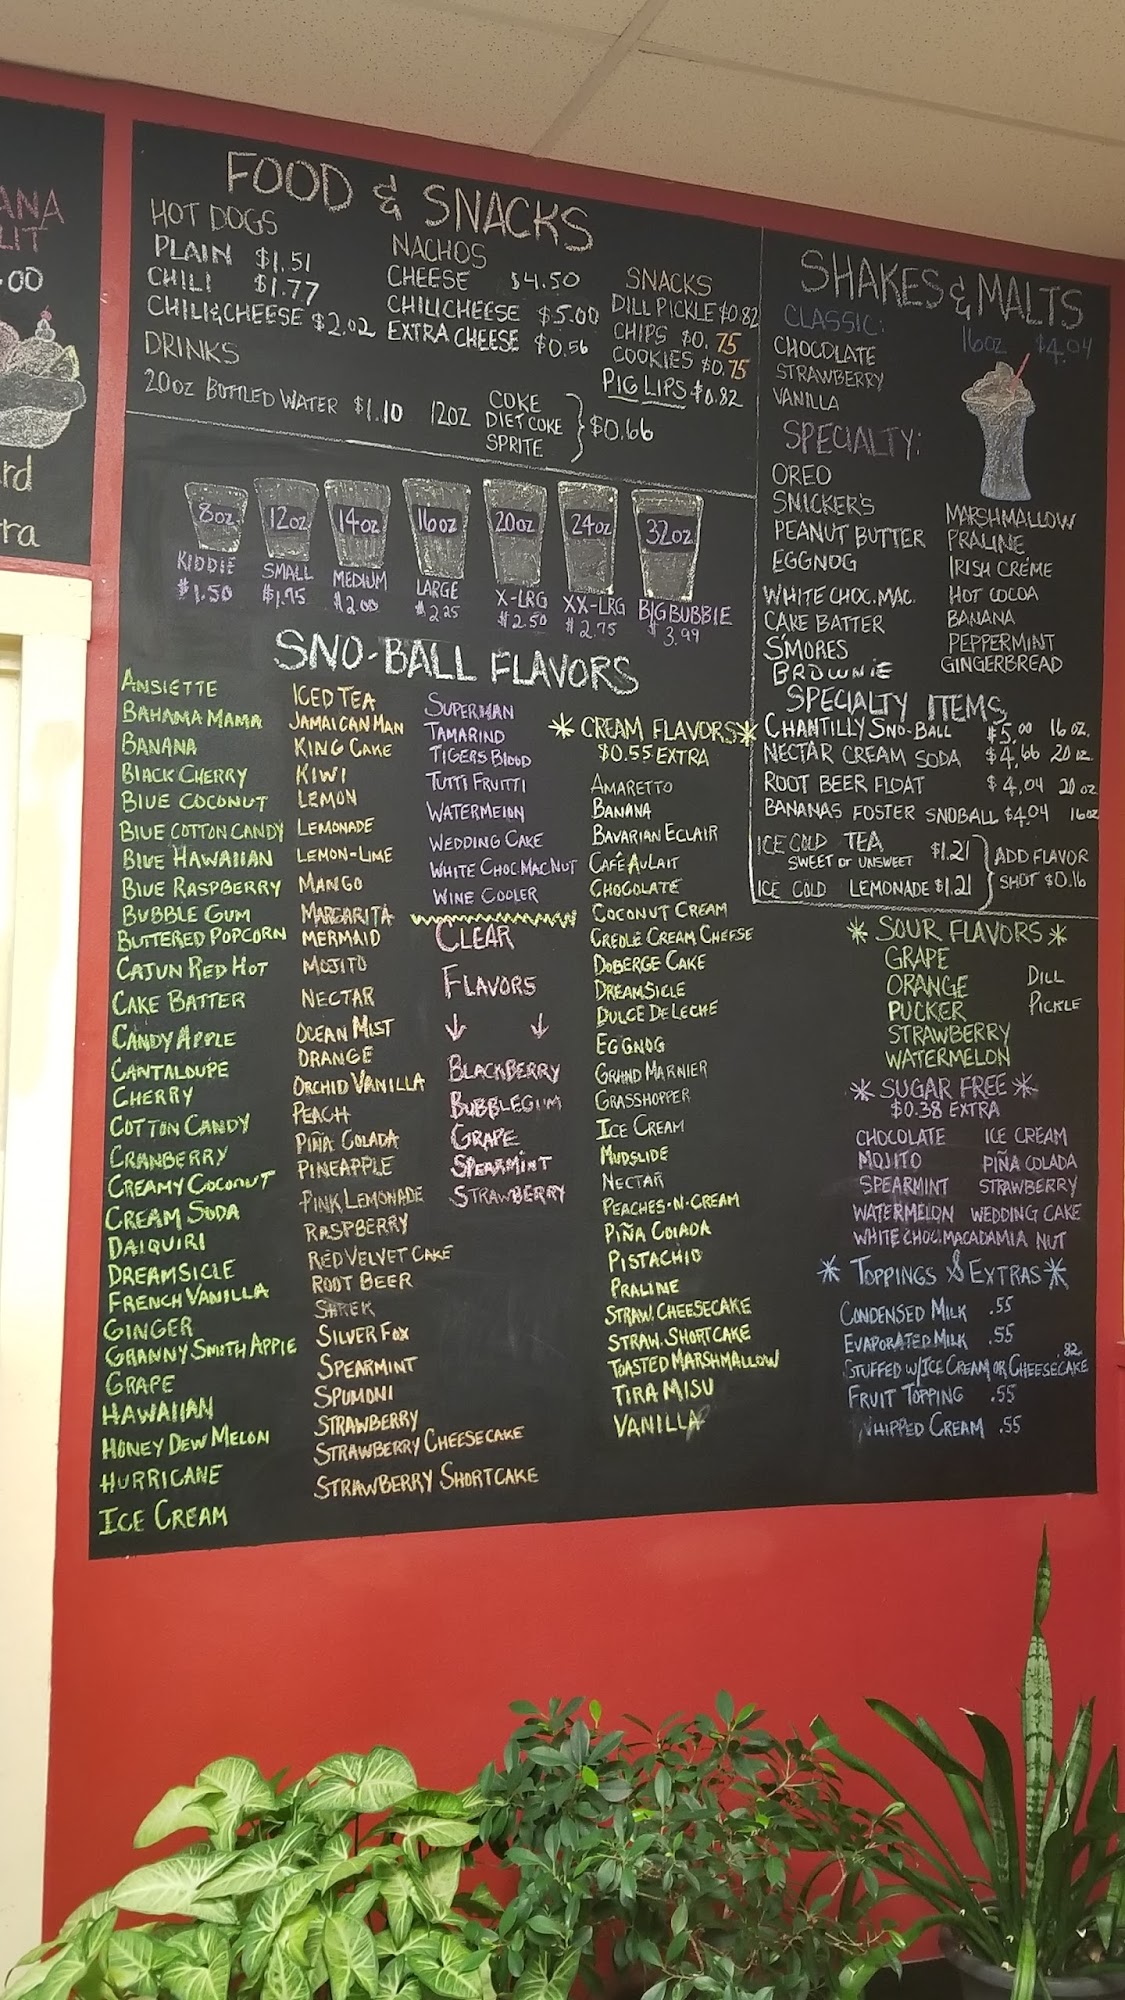 ANA
LIT
.00
rd
tra
FOOD & SNACKS
HOT DOGS
PLAIN $1.51
CHILI $1.77
CHILI&CHEESE $2.02
NACHOS
CHEESE $4.50
CHILICHEESE $5.00
EXTRA CHEESE $0.56
SNACKS
DILL PICKLE $0.82
CHIPS $0.75
COOKIES $0.75
PIG LIPS $0.82
DRINKS
20OZ BOTTLED WATER $1.10
12OZ COKE
DIET COKE
SPRITE
$0.66
8oz
KIDDIE
$1.50
12oz
SMALL
$1.75
14oz
MEDIUM
$2.00
16oz
LARGE
$2.25
20oz
X-LRG
$2.50
24oz
XX-LRG
$2.75
32oz
BIGBUBBIE
$3.99
SNO-BALL FLAVORS
ANSIETTE
BAHAMA MAMA
BANANA
BLACK CHERRY
BLUE COCONUT
BLUE COTTON CANDY
BLUE HAWAIIAN
BLUE RASPBERRY
BUBBLE GUM
BUTTERED POPCORN
CAJUN RED HOT
CAKE BATTER
CANDY APPLE
CANTALOUPE
CHERRY
COTTON CANDY
CRANBERRY
CREAMY COCONUT
CREAM SODA
DAIQUIRI
DREAMSICLE
FRENCH VANILLA
GINGER
GRANNY SMITH APPLE
GRAPE
HAWAIIAN
HONEY DEW MELON
HURRICANE
ICE CREAM
ICED TEA
JAMAICAN MAN
KING CAKE
KIWI
LEMON
LEMONADE
LEMON-LIME
MANGO
MARGARITA
MERMAID
MOJITO
NECTAR
OCEAN MIST
ORANGE
ORCHID VANILLA
PEACH
PIÑA COLADA
PINEAPPLE
PINK LEMONADE
RASPBERRY
RED VELVET CAKE
ROOT BEER
SHREK
SILVER FOX
SPEARMINT
SPUMONI
STRAWBERRY
STRAWBERRY CHEESECAKE
STRAWBERRY SHORTCAKE
SUPERMAN
TAMARIND
TIGERS BLOOD
TUTTI FRUITTI
WATERMELON
WEDDING CAKE
WHITE CHOC. MAC. NUT
WINE COOLER
CLEAR
FLAVORS
BLACKBERRY
BUBBLEGUM
GRAPE
SPEARMINT
STRAWBERRY
* CREAM FLAVORS *
$0.55 EXTRA
AMARETTO
BANANA
BAVARIAN ECLAIR
CAFÉ AU LAIT
CHOCOLATE
COCONUT CREAM
CREOLE CREAM CHEESE
DOBERGE CAKE
DREAMSICLE
DULCE DE LECHE
EGGNOG
GRAND MARNIER
GRASSHOPPER
ICE CREAM
MUDSLIDE
NECTAR
PEACHES-N-CREAM
PIÑA COLADA
PISTACHIO
PRALINE
STRAW. CHEESECAKE
STRAW. SHORTCAKE
TOASTED MARSHMALLOW
TIRA MISU
VANILLA
SHAKES & MALTS
CLASSIC: 16oz $4.04
CHOCOLATE
STRAWBERRY
VANILLA
SPECIALTY:
OREO
SNICKER'S
PEANUT BUTTER
EGGNOG
WHITE CHOC. MAC.
CAKE BATTER
S'MORES
BROWNIE
MARSHMALLOW
PRALINE
IRISH CRÉME
HOT COCOA
BANANA
PEPPERMINT
GINGERBREAD
SPECIALTY ITEMS
CHANTILLY SNO-BALL $5.00 16 OZ.
NECTAR CREAM SODA $4.66 20 oz
ROOT BEER FLOAT $4.04 20 oz
BANANAS FOSTER SNOBALL $4.04 16oz
ICE COLD TEA $1.21
SWEET or UNSWEET
ICE COLD LEMONADE $1.21
ADD FLAVOR
SHOT $0.16
* SOUR FLAVORS *
GRAPE
ORANGE
PUCKER
STRAWBERRY
WATERMELON
DILL
PICKLE
* SUGAR FREE *
$0.38 EXTRA
CHOCOLATE ICE CREAM
MOJITO PIÑA COLADA
SPEARMINT STRAWBERRY
WATERMELON WEDDING CAKE
WHITE CHOC. MACADAMIA NUT
* TOPPINGS & EXTRAS *
CONDENSED MILK .55
EVAPORATED MILK .55
STUFFED W/ICE CREAM OR CHEESECAKE .82
FRUIT TOPPING .55
WHIPPED CREAM .55